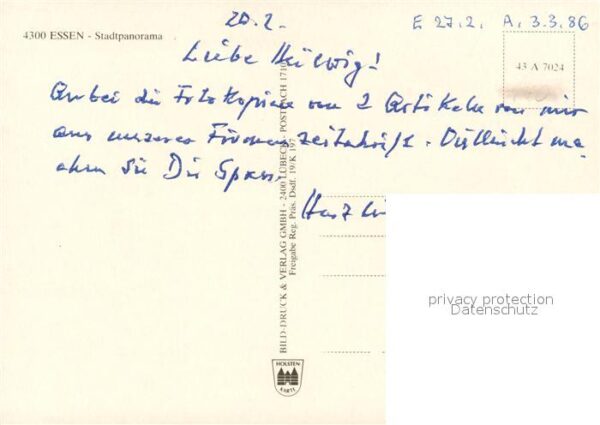 20.2.
E 27.2. A. 3.3.86
4300 ESSEN - Stadtpanorama
Liebe Helwig!
43 A 7024
Anbei die Fotokopien von 2 Artikeln von mir
aus unserer Firmenzeitschrift. Vielleicht ma-
chen Sie Dir Spass.
BILD-DRUCK & VERLAG GMBH - 2400 LÜBECK - POSTFACH 1710
Freigabe Reg. Präs. Dsdf. 19/K 197
privacy protection
Datenschutz
HOLSTEN
KARTE